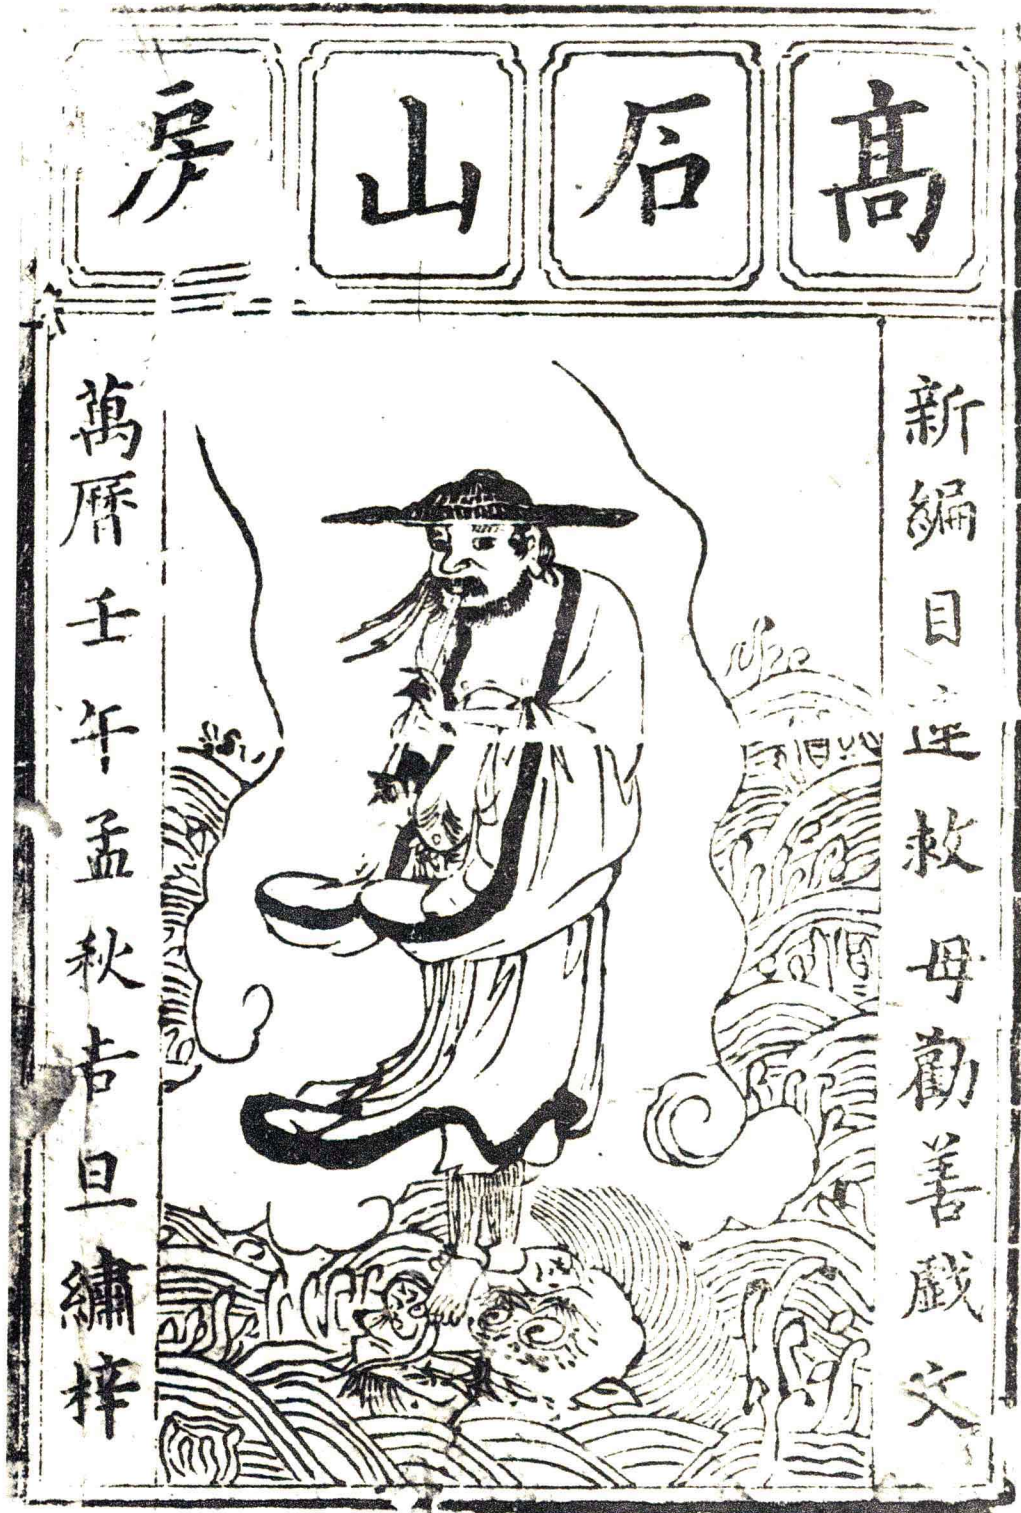 髙石山房
新編目連救母勸善戲文
萬曆壬午孟秋吉旦繡梓